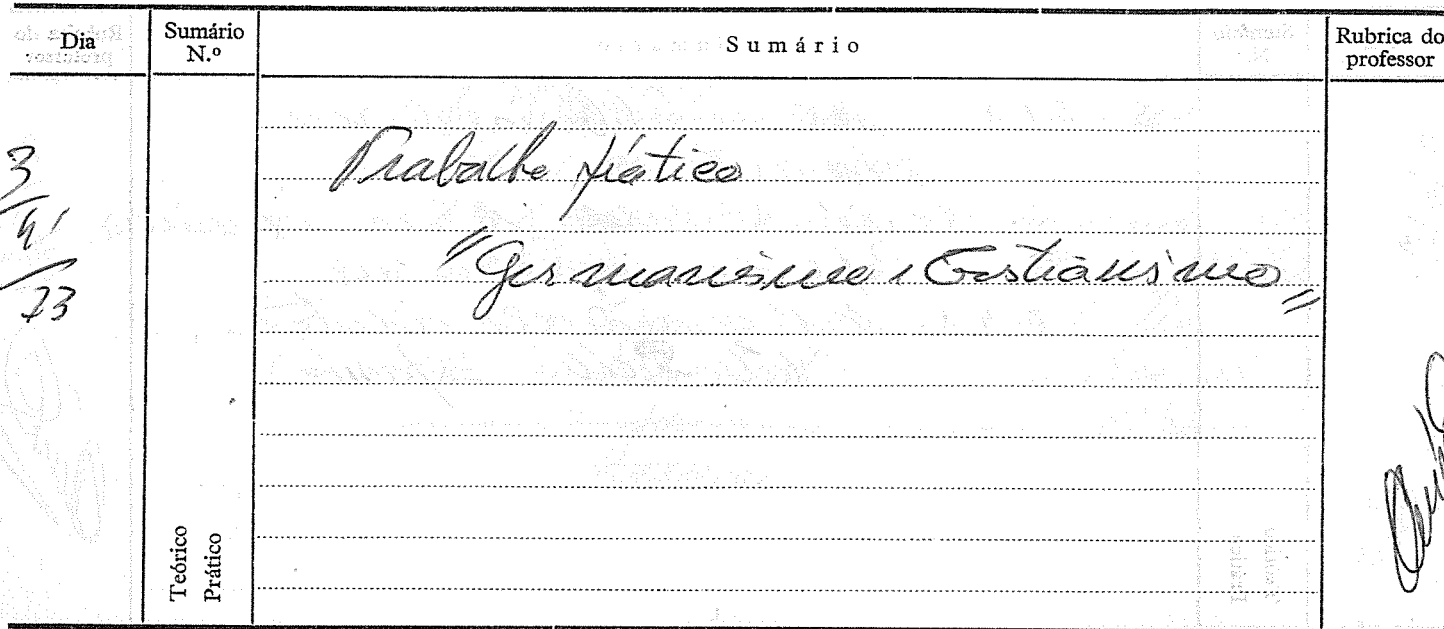 Dia
Sumário N.º
Sumário
Rubrica do professor
3
4
73
Trabalho prático
"Germanismo e Cristianismo"
Teórico
Prático